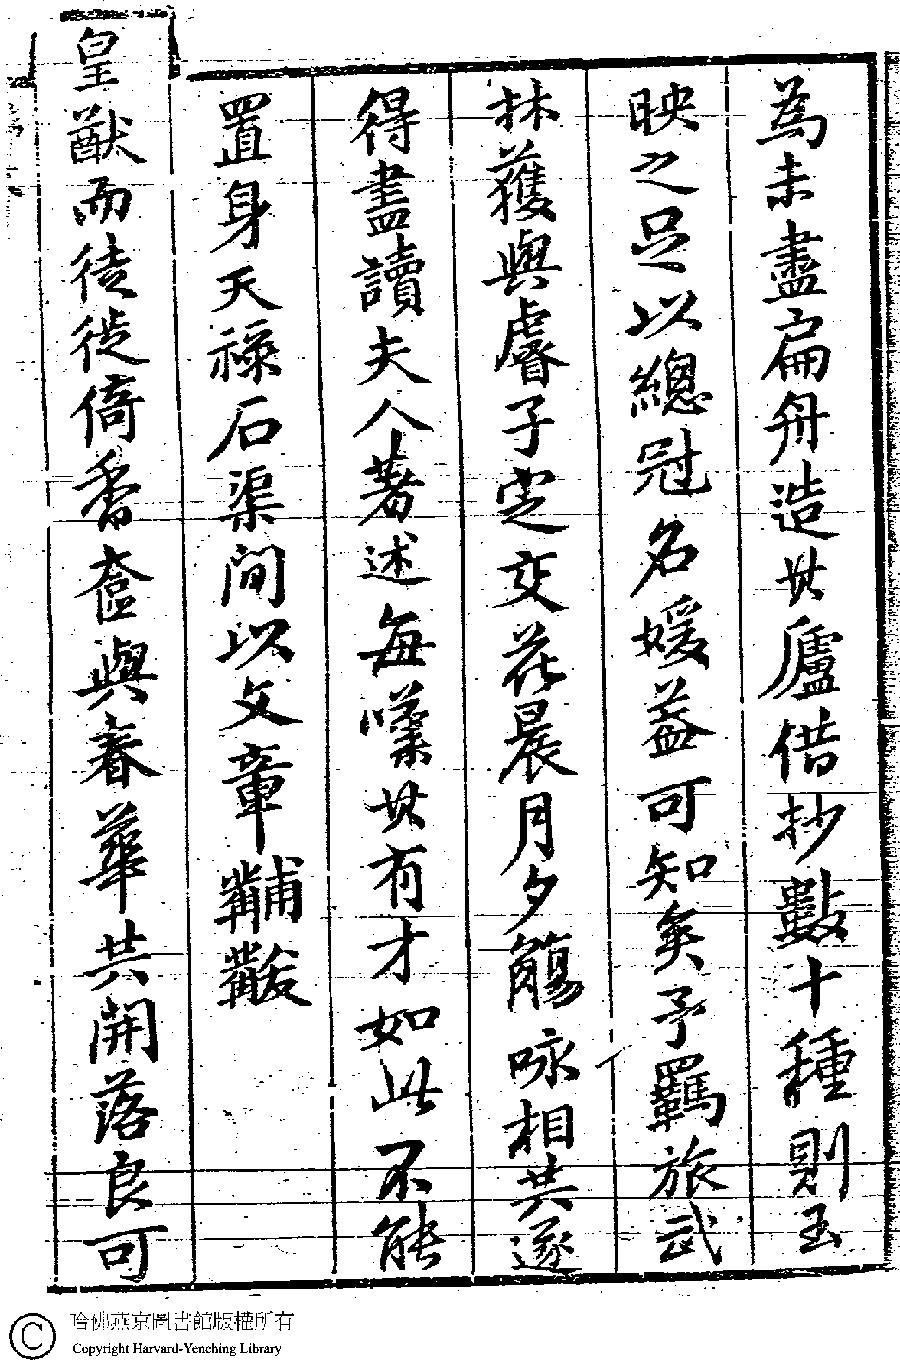 為未盡扁舟造其廬借抄數十種則玉
映之足以總冠名媛益可知矣予羈旅武
林獲與睿子定交花晨月夕觴咏相共遂
得盡讀夫人著述每嘆其有才如此不能
置身天祿石渠間以文章黼黻
皇猷而徒徙倚香奩與春華共開落良可
哈佛燕京圖書館版權所有
Copyright Harvard-Yenching Library